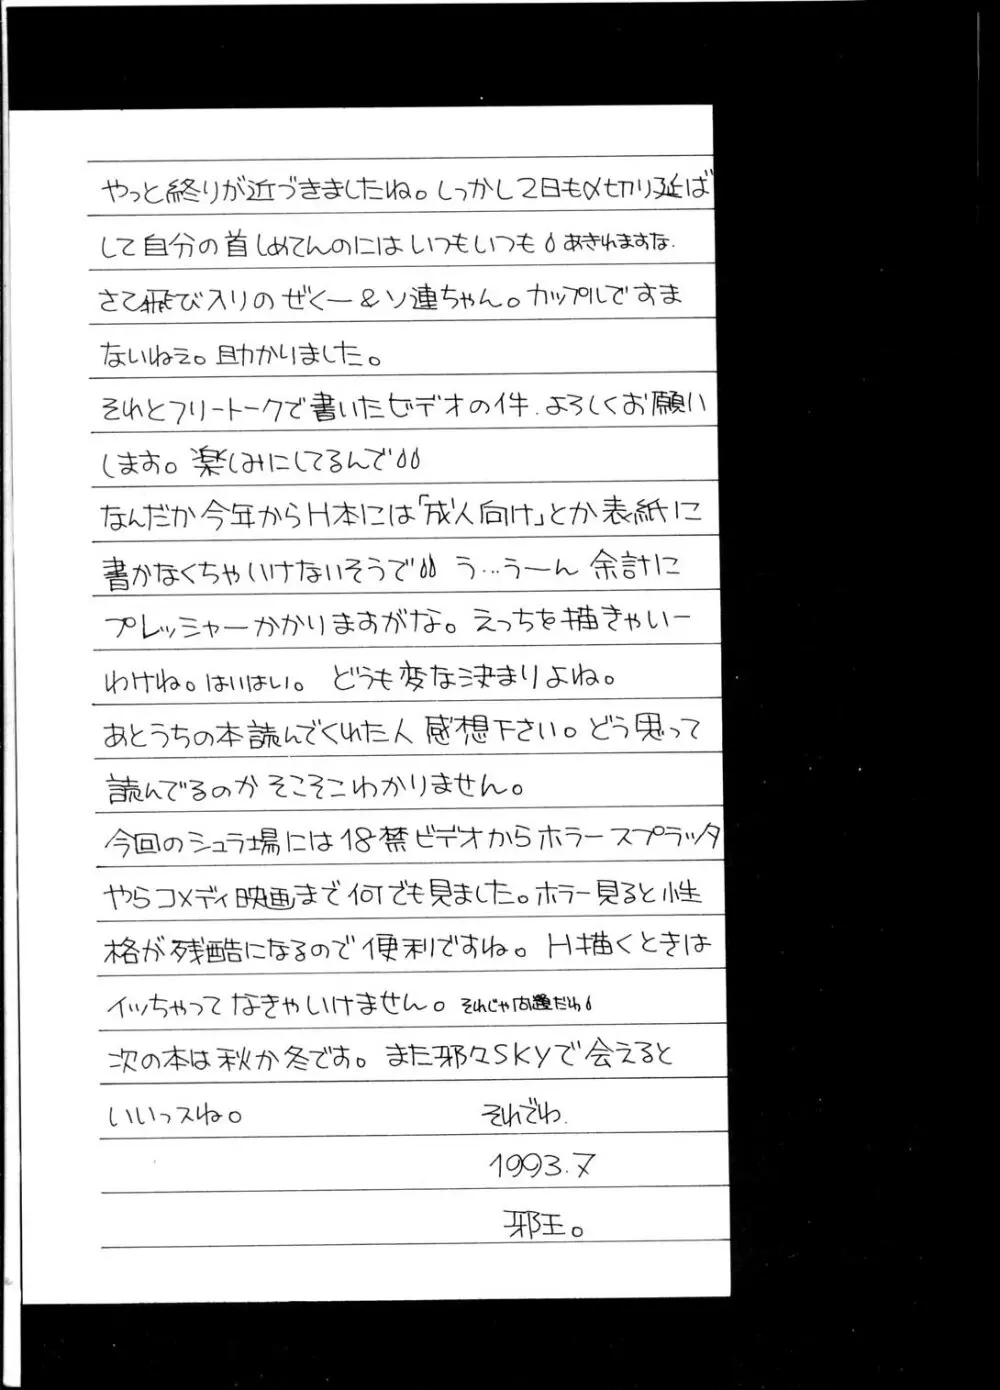 やっと終りが近づきましたね。しっかし2日も〆切り延ば
して自分の首しめてんのにはいつもいつも あきれますな.
さて飛び入りのぜくー&ソ連ちゃん。カップルですま
ないねぇ。助かりました。
それとフリートークで書いたビデオの件.よろしくお願い
します。楽しみにしてるんで
なんだか今年からH本には「成人向け」とか表紙に
書かなくちゃいけないそうで う…うーん 余計に
プレッシャーかかりますがな。えっちを描きゃいー
わけね。はいはい。 どうも変な決まりよね。
あとうちの本読んでくれた人 感想下さい。どう思って
読んでるのか そこそこわかりません。
今回のシュラ場には18禁ビデオからホラースプラッタ
やらコメディ映画まで何でも見ました。ホラー見ると性
格が残酷になるので便利ですね。H描くときは
イッちゃってなきゃいけません。それじゃ問題だわ
次の本は秋か冬です。また邪々SKYで会えると
いいっスね。 それでわ.
1993.7
邪王。